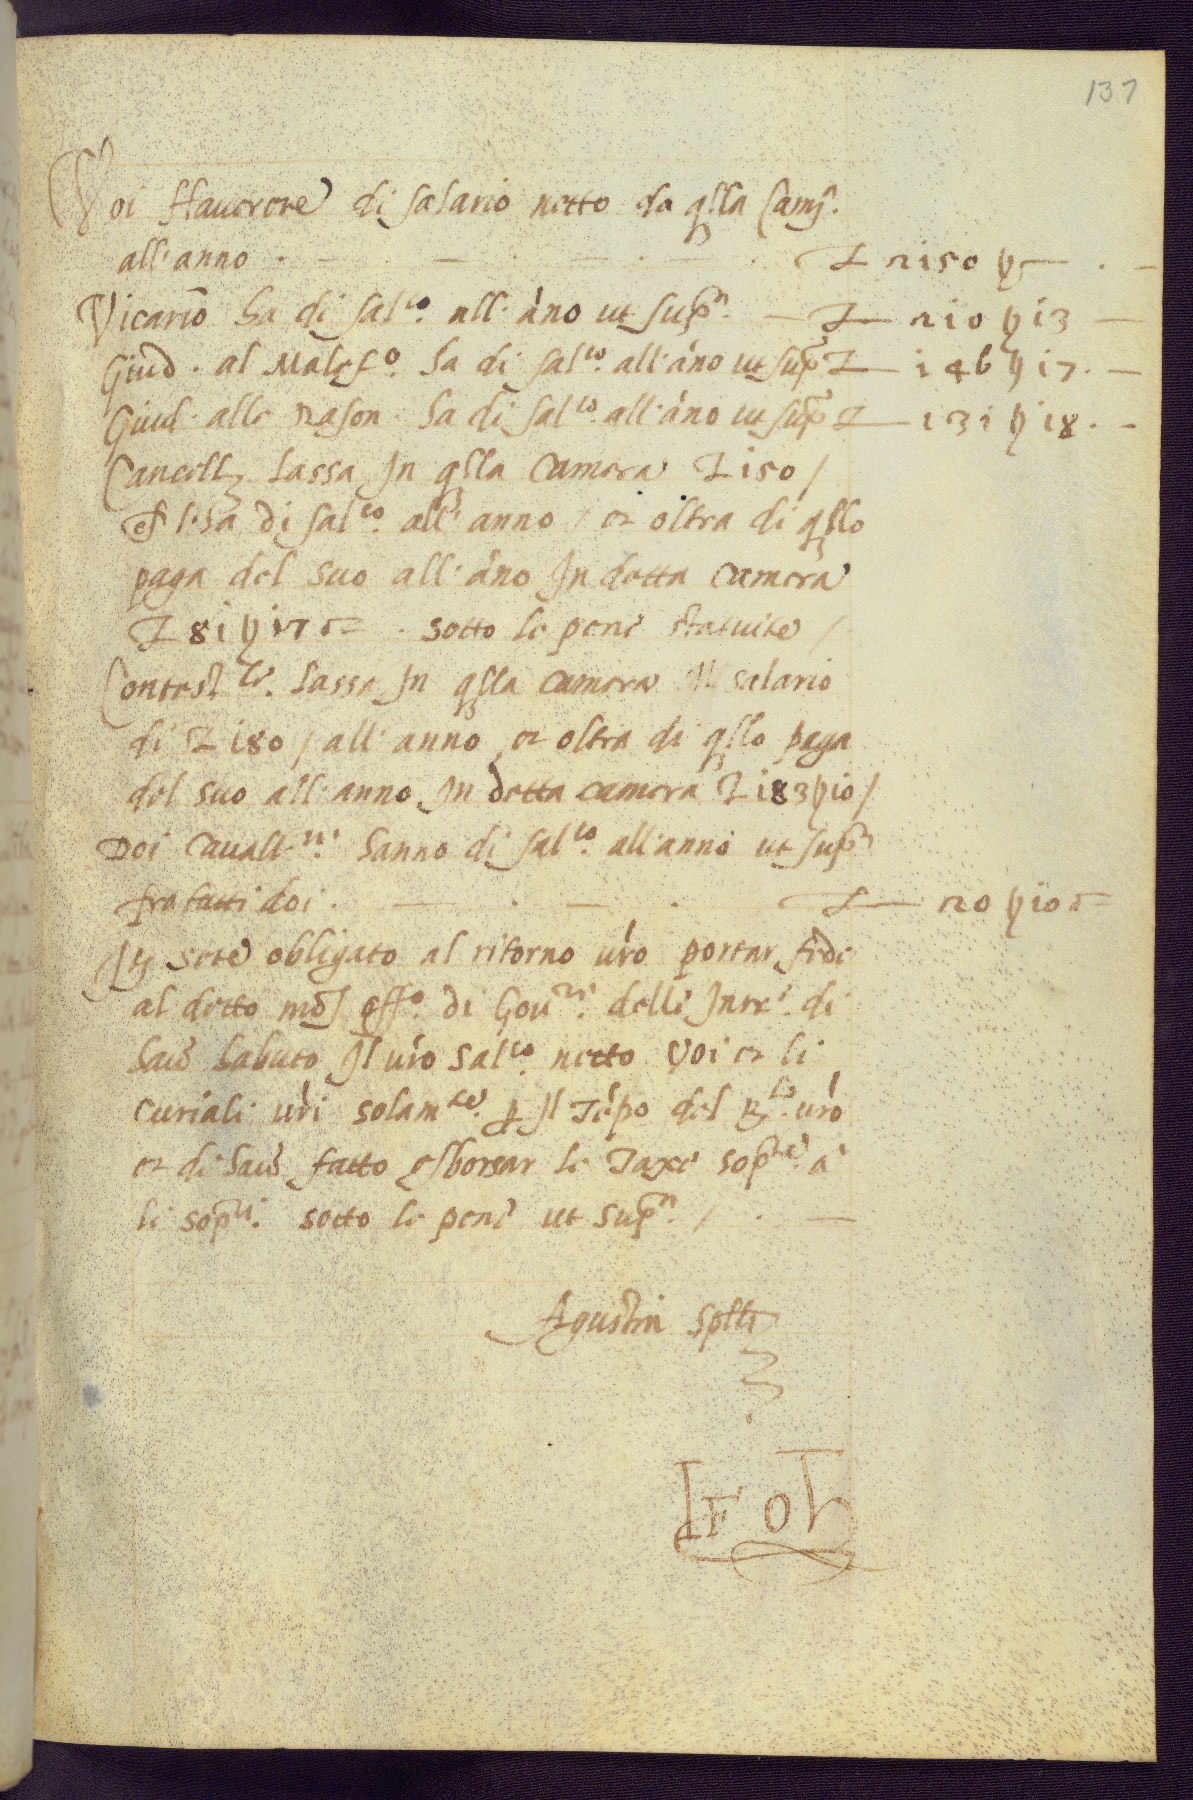 137
Voi Hauerete di salario netto da qlla Camª.
all'anno . — . — . — . — . £ 2150 ẞ — . —
Vicario ha di salᵒ. all'ãno ut supª. — £ 210 ẞ 13 —
Giud. al Malefᵒ. ha di salᵒ. all'ãno ut supª £ 146 ẞ 17. —
Giud. alle Rason. ha di salᵒ. all'ãno ut supª £ 131 ẞ 18. —
Cancell lassa In qlla camera £ 150 /
ha di salᵒ. all'anno / et oltra di qllo
paga del suo all'ãno In detta camera
£ 81 ẞ 17 . sotto le pene statuite /
Contestˡᵉ. lassa In qlla camera Il salario
di £ 180 / all'anno et oltra di qllo paga
del suo all'anno In detta camera £ 183 ẞ 10 /
Doi Cauallʳⁱ. hanno di salᵒ. all'anno ut supª
fra tutti doi . — . — . £ 20 ẞ 10
It sete obligato al ritorno uro portar fede
al detto mag offᵒ. di Gouʳⁱ. delle Intrᵉ. di
hauer habuto Il uro Salᵒ. netto Voi et li
curiali uri solamᵗᵉ. p Il Tẽpo del Rᵗᵒ. uro
et di hauer fatto esborsar le Taxe sopᵗᵉ. a
li sopᵗⁱ. sotto le pene ut supª. / . —
Agustin